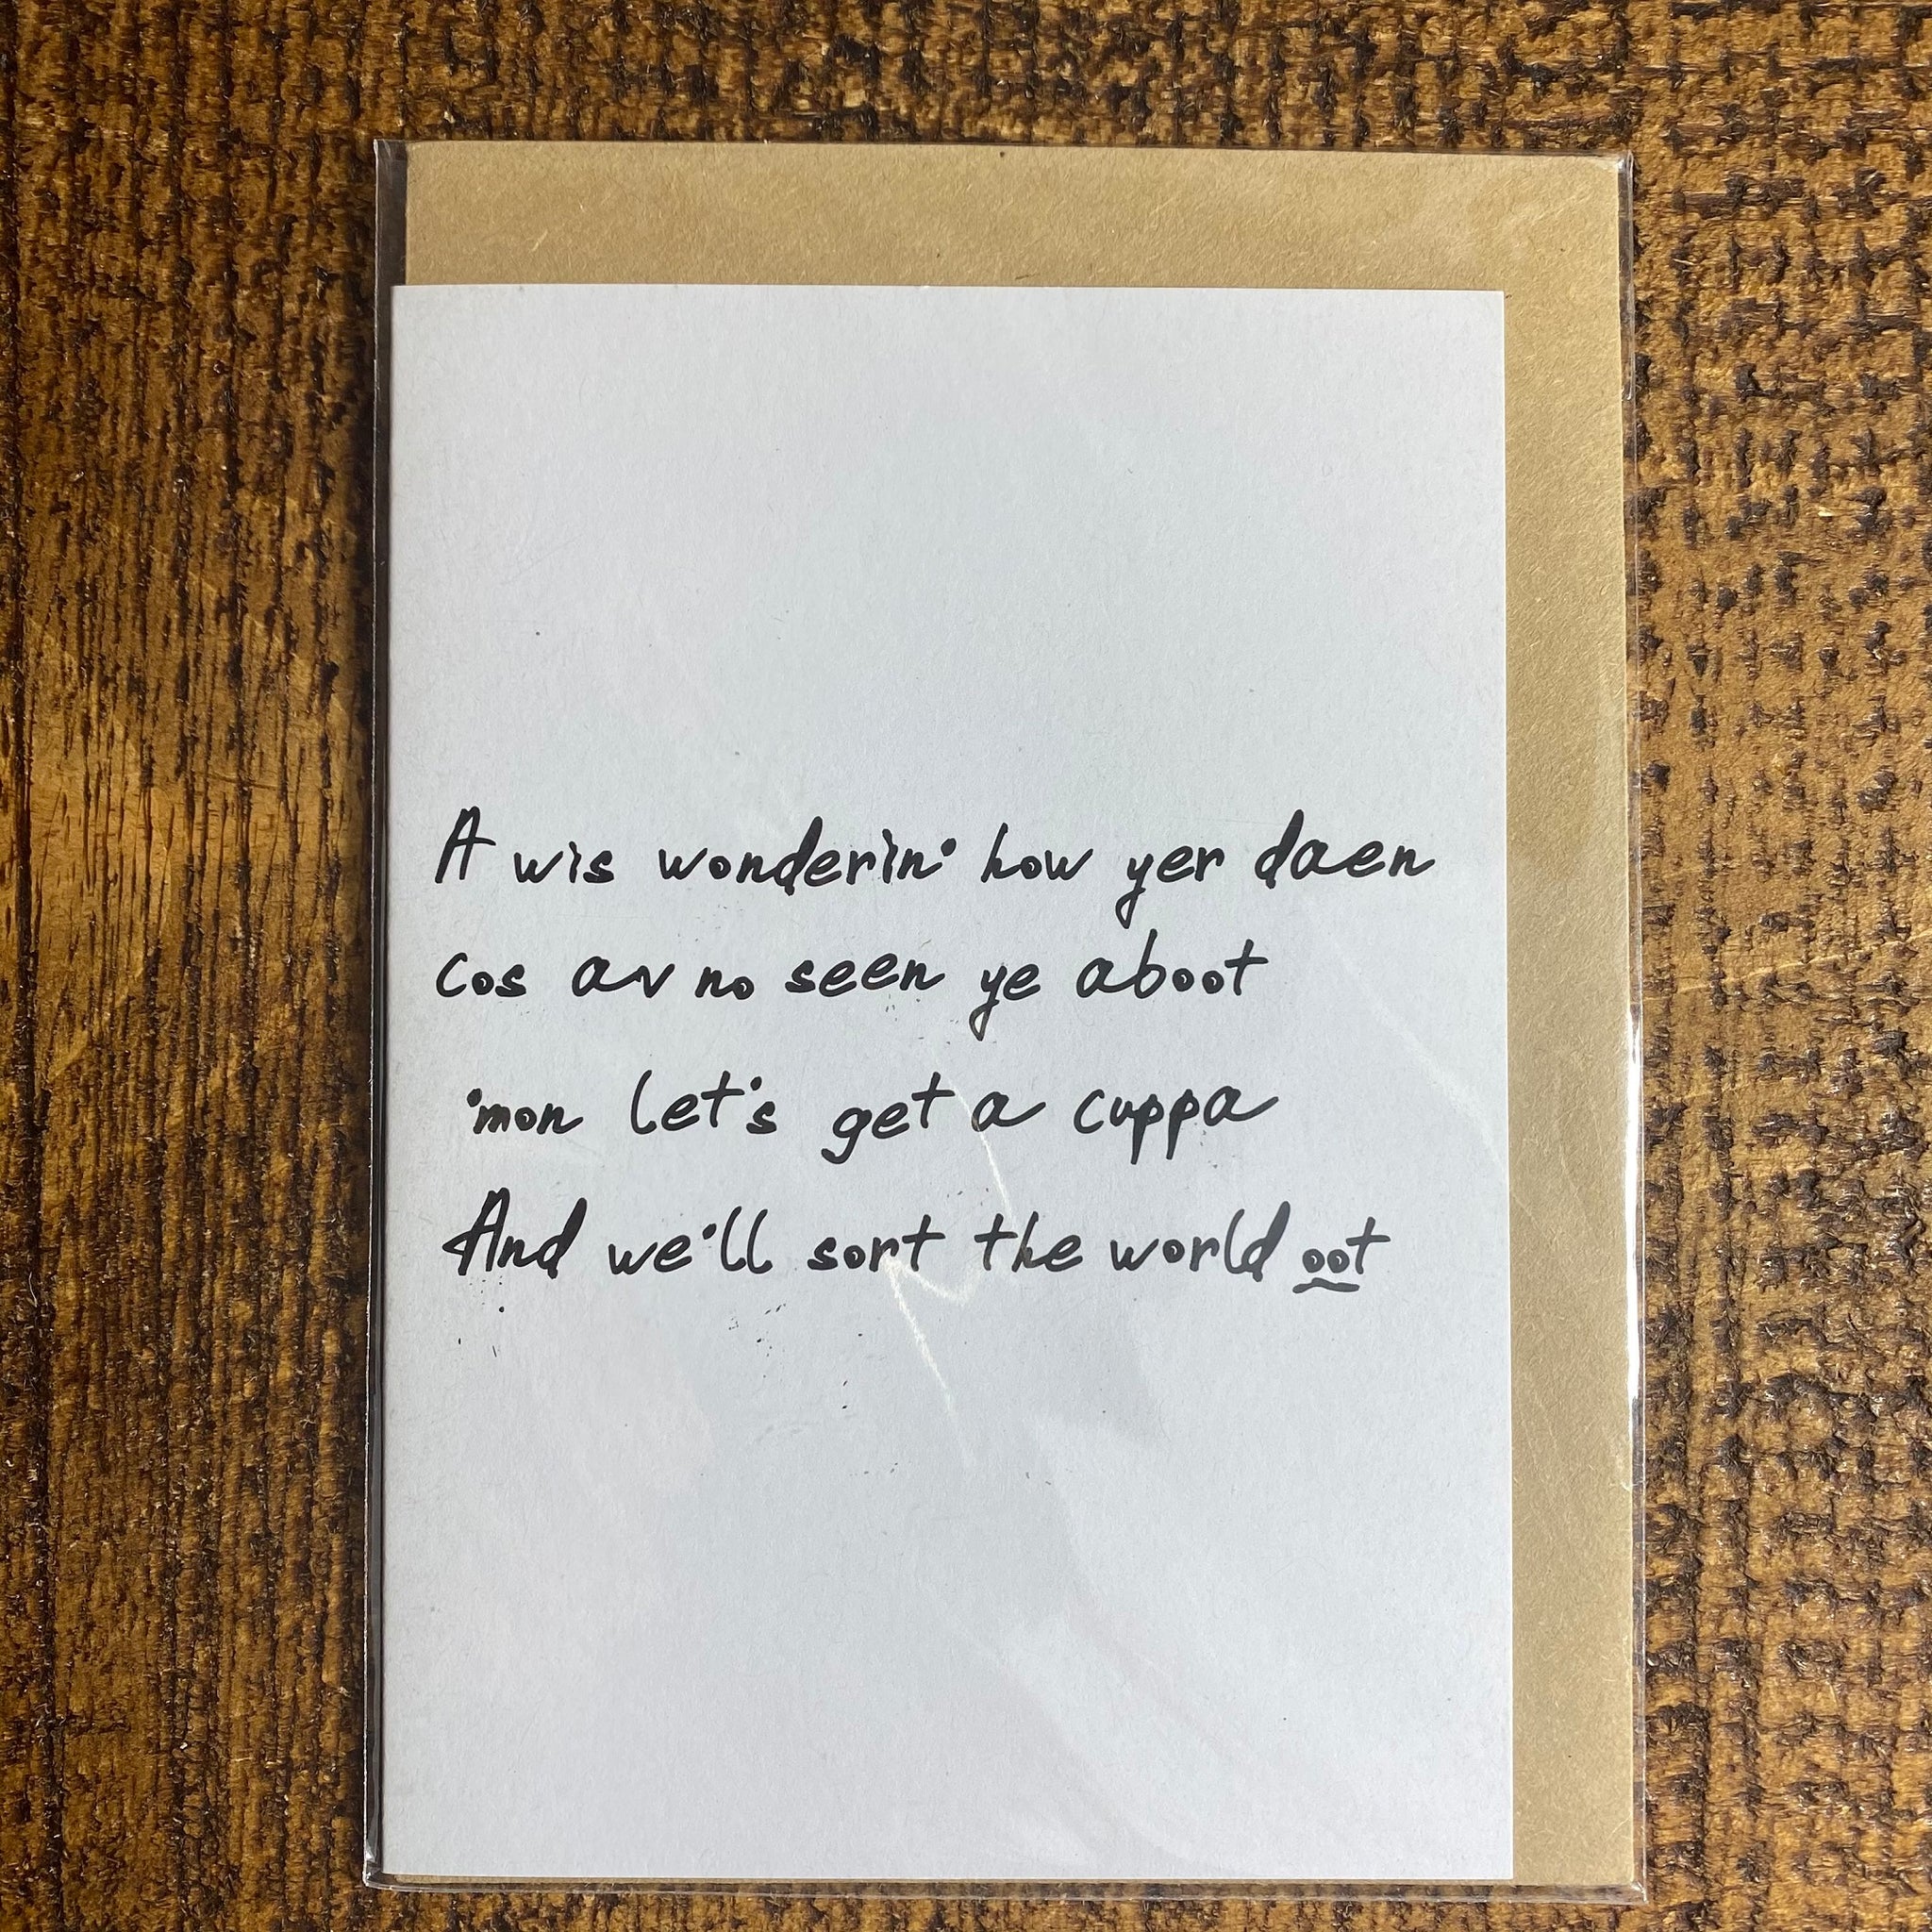 A wis wonderin' how yer daen
cos av no seen ye aboot
'mon let's get a cuppa
And we'll sort the world oot